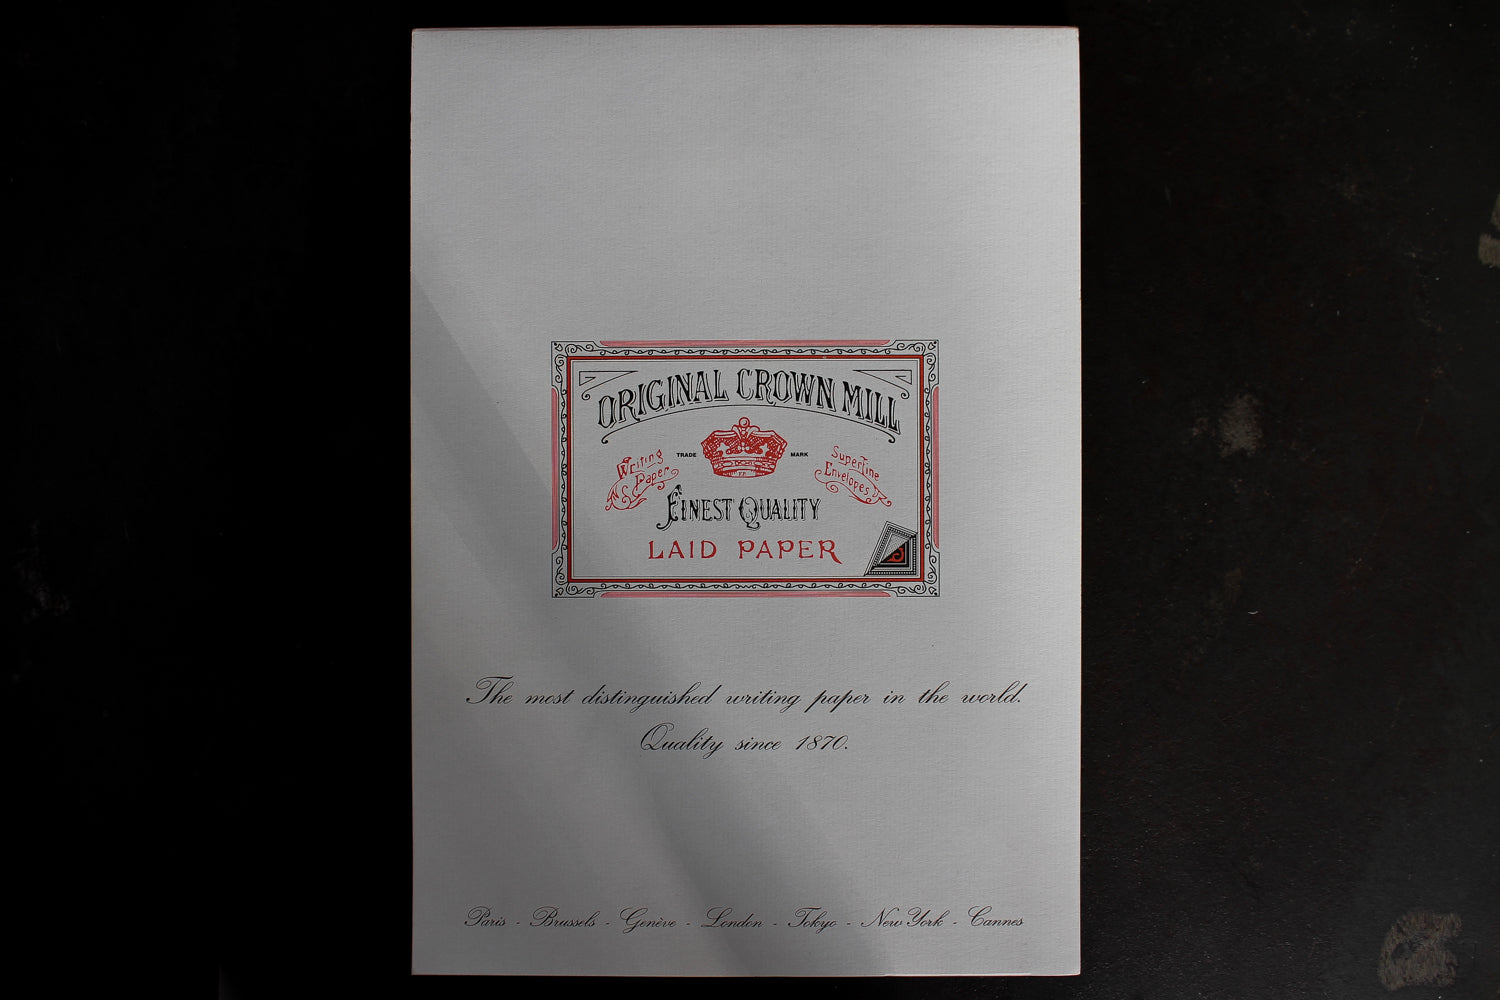 ORIGINAL CROWN MILL
TRADE MARK
Writing Paper
Superfine Envelopes
FINEST QUALITY
LAID PAPER
The most distinguished writing paper in the world.
Quality since 1870.
Paris - Brussels - Genève - London - Tokyo - New York - Cannes